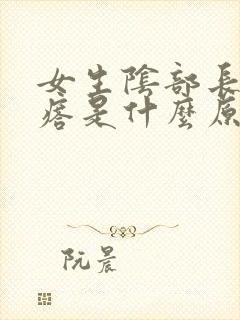 女生陰部長
痞是什麼原
阮晨